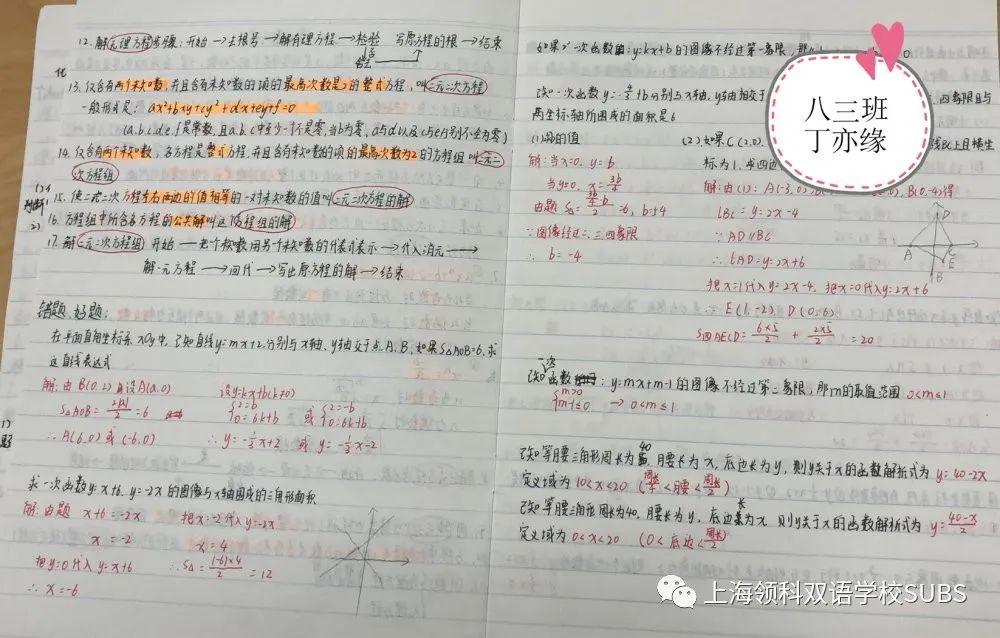 12. 解无理方程步骤: 开始 → 去根号 → 解有理方程 → 检验 写原方程的根 → 结束
13. 仅含有两个未知数,并且含有未知数的项的最高次数是2的整式方程,叫二元二次方程
一般形式是: ax²+bxy+cy²+dx+ey+f=0
(a、b、c、d、e、f是常数, 且a、b、c中至少一个不是零,当b为零, a与d以及c与e分别不全为零)
14. 仅含有两个未知数,各方程是整式方程,并且含有未知数的项的最高次数为2的方程组叫二元二
次方程组
15. 使二元二次方程左右两边的值相等的一对未知数的值叫二元二次方程的解
16. 方程组中所含各方程的公共解叫这个方程组的解
17. 解二元二次方程组 开始 → 把个未知数用另个未知数的代表式表示 → 代入消元 →
解一元方程 → 回代 → 写出原方程的解 → 结束
错题、好题:
在平面直角坐标系xOy中,已知直线y=mx+2,分别与x轴、y轴交于点A、B,如果S△AOB=6,求
这直线表达式
解: 由B(0,2) 设A(a,0) 设y=kx+b(k≠0)
S△AOB= 2|a|/2 =6 {2=b 0=6k+b 或 {2=-b 0=6k+b
∴A(6,0)或(-6,0) ∴y=-1/3x+2 或 y=-1/3x-2
求一次函数y=x+6, y=-2x的图像与x轴围成的三角形面积
解: 由题 x+6=-2x 把x=-2代入y=-2x
x=-2 x=4
把y=0代入y=x+6 ∴S△= |-6|×4/2 =12
∴x=-6
如果一次函数 y=kx+b的图像不经过第一象限, 那
已知一次函数y= 分别与x轴, y轴相交于
四象限且与
两坐标轴所围成的面积是6
(1)b的值 (2)如果C(2,0)
线上且横坐
解: 当x=0, y=b 标为1, 求四边
当y=0, x= 3b/4 解: 由(1): A(-3,0) B(0,-4)得
由题 =6, b=±4 lBC=y=2x-4
∵图像经过二、三、四象限 ∵AD∥BC
∴b=-4 ∴lAD=y=2x+6
把x=1代入y=2x-4, 把x=0代入y=2x+6
∴E(1,-2) D(0,6)
S四AECD= 6×5/2 + 2×5/2 =20
A
B
C
D
E
已知一次函数: y=mx+m-1的图像不经过第二象限,那m的取值范围 0<m≤1
{m>0 m-1≤0 → 0<m≤1
已知等腰三角形周长为40,腰长为x,底边长为y,则y关于x的函数解析式为 y=40-2x
定义域为 10<x<20 (周长/4<腰<周长/2)
已知等腰三角形周长为40, 腰长为y, 底边长为x, 则y关于x的函数解析式为 y=40-x/2
定义域为 0<x<20 (0<底边<周长/2)
八三班
丁亦缘
上海领科双语学校SUBS